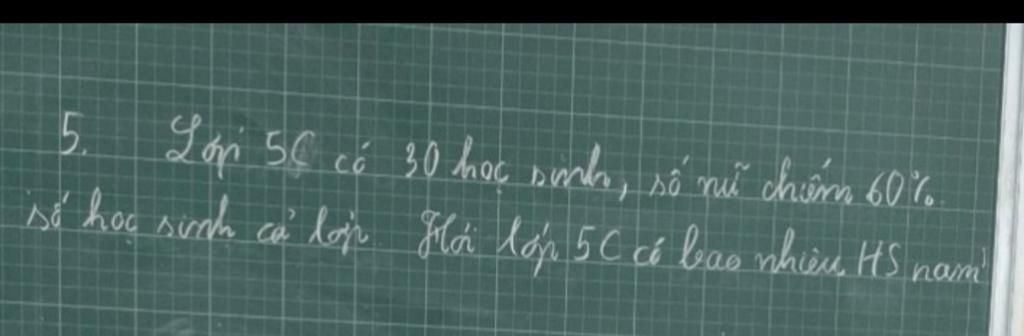 5. Lớp 5C có 30 học sinh, số nữ chiếm 60%
số học sinh cả lớp. Hỏi lớp 5C có bao nhiêu HS nam?